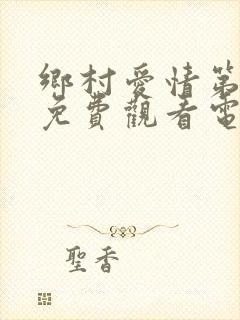 鄉村愛情第
免費觀看電
聖香